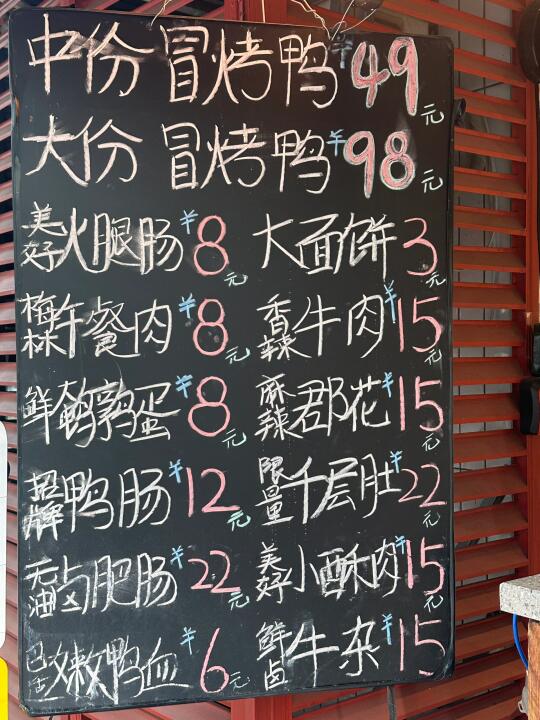 中份 冒烤鸭 ¥49元
大份 冒烤鸭 ¥98元
美好火腿肠 ¥8元 大面饼 3元
梅林午餐肉 ¥8元 香辣牛肉 ¥15元
鲜鹌鹑蛋 ¥8元 麻辣郡花 ¥15元
招牌鸭肠 ¥12元 限量千层肚 ¥22元
无油卤肥肠 ¥22元 美好小酥肉 ¥15元
嫩鸭血 ¥6元 鲜卤牛杂 ¥15